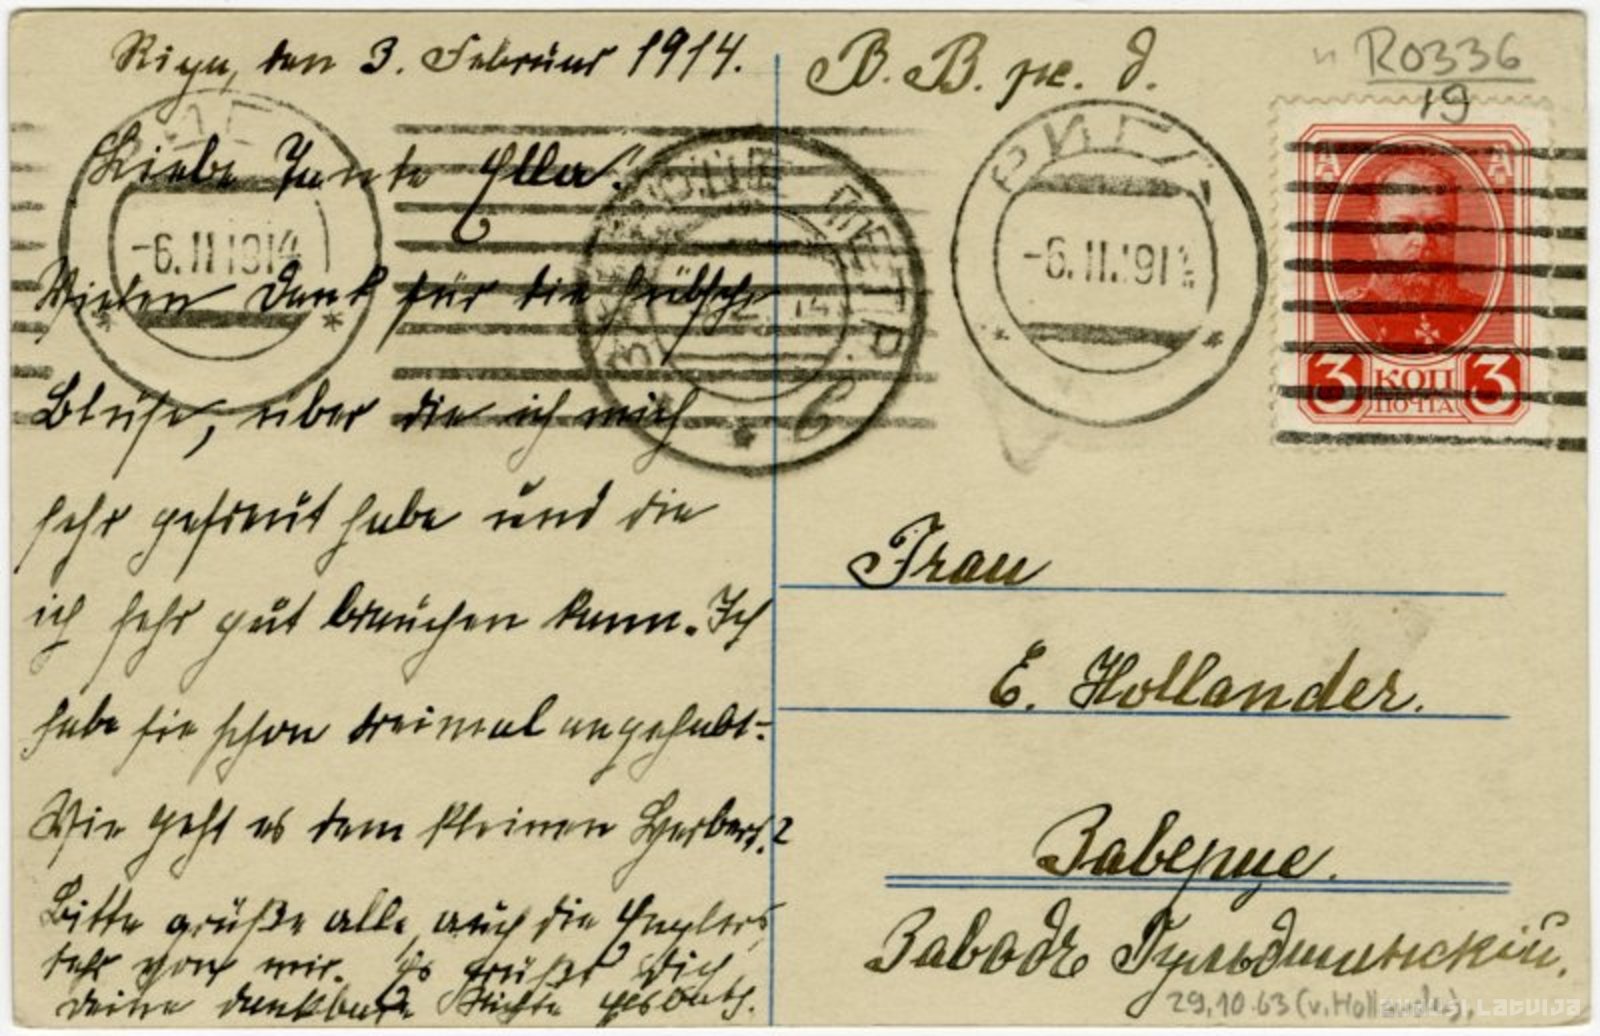 Riga, den 3. Februar 1914.
Liebe Tante Ella!
Vielen Dank für die hübsche
Bluse, über die ich mich
sehr gefreut habe und die
ich sehr gut brauchen kann. Ich
habe sie schon dreimal angehabt.
Wie geht es dem kleinen Herbert?
Bitte grüße alle, auch die Englers,
sehr von mir. Es grüßt Dich
Deine dankbare Nichte
В. В. ж. д.
R0336
19
РИГА
-6.11.1914
РИГА
-6.11.191
ПЕТР.
А А
3 КОП 3
ПОЧТА
Frau
E. Hollander.
Заверце.
Заводъ Гульдшинскій.
29.10.63 (v. Hollander)
zudusi Latvija